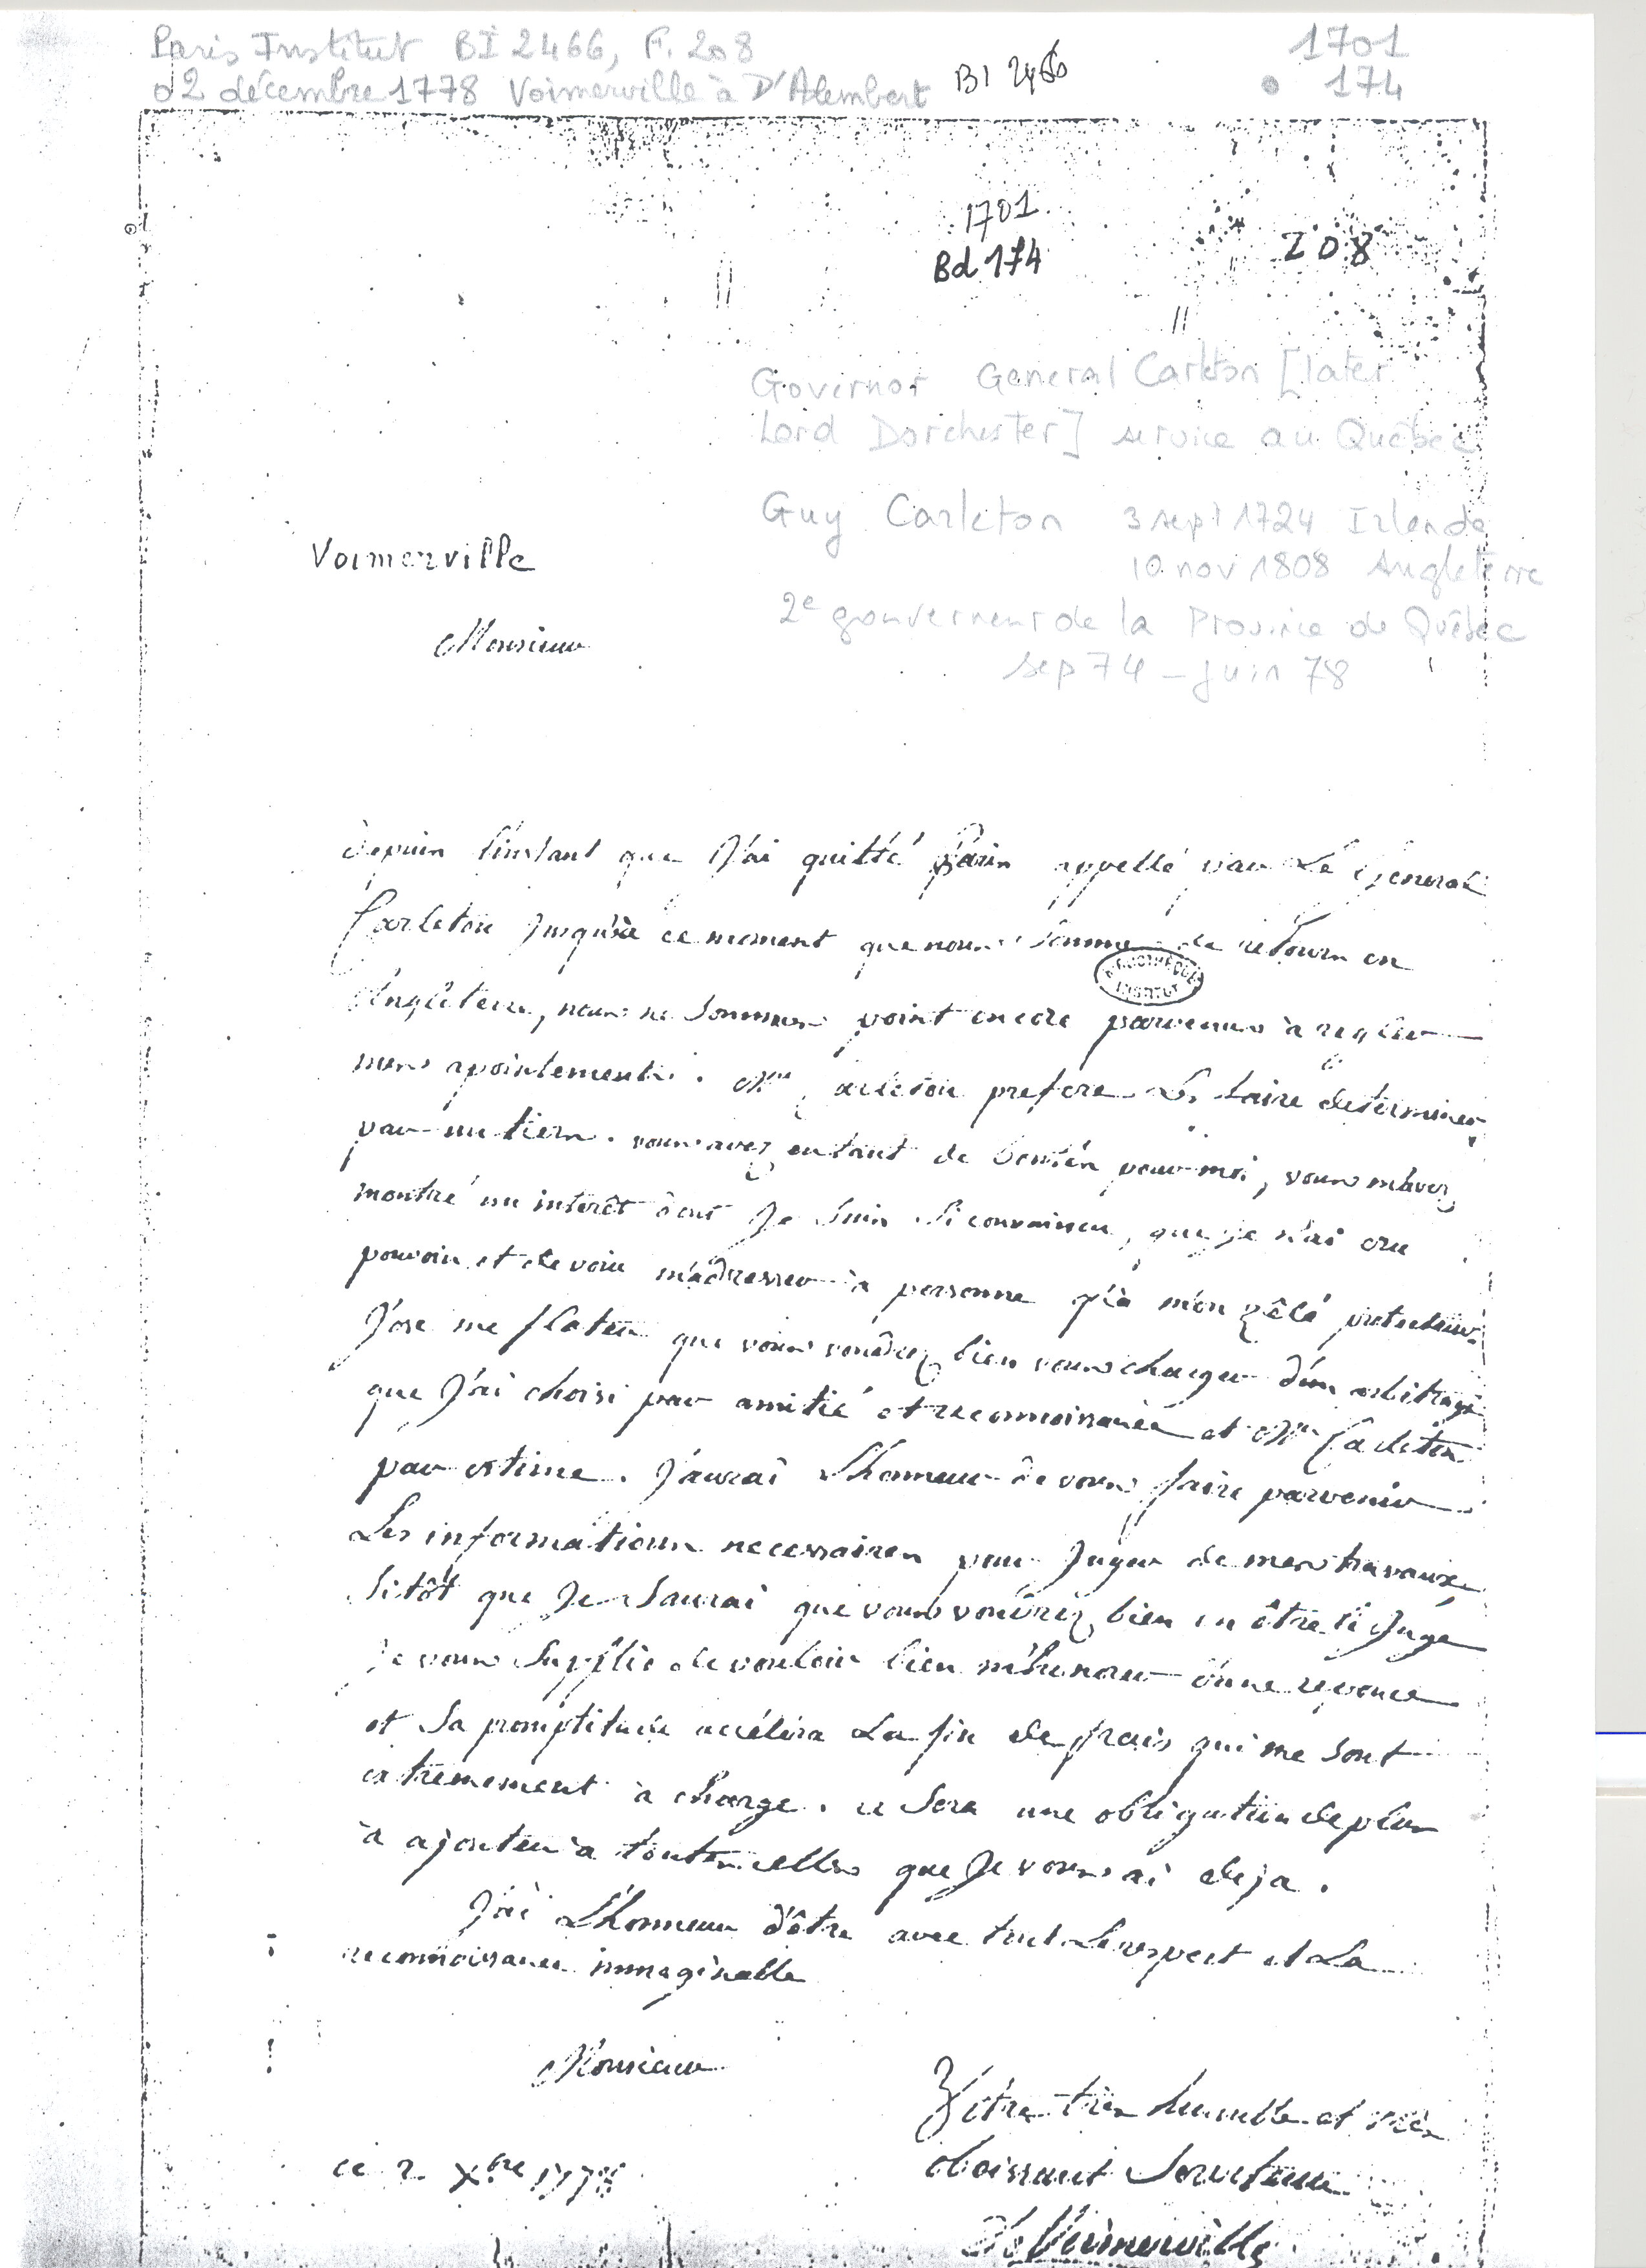 Paris Institut BI 2466, F. 208
1701
02 décembre 1778 Voimerville à D'Alembert
BI 2466
174
1701
Bd 174
208
Governor General Carleton [later
Lord Dorchester] service au Québec
Guy Carleton 3 sept 1724 Irlande
10 nov 1808 Angleterre
2e gouverneur de la Province de Québec
sep 74 - juin 78
Voimerville
Monsieur
depuis l'instant que J'ai quitté Paris appellé par Le General
Carleton Jusqu'à ce moment que nous somme de retours en
Angleterre, nous ne sommes point encore parvenus à regler
mes apointements. Mr Carleton prefere Les faire determiner
par un tiers. vous avez eu tant de bontés pour moi, vous m'avez
montré un interêt dont Je suis si convaincu, que je n'ai cru
pouvoir et devoir m'adresser à personne qu'à mon zêlé protecteur.
J'ose me flater que vous voudrez bien vous charger d'un arbitrage
que J'ai choisi par amitié et reconnoissance et Mr Carleton
par estime. J'aurai L'honneur de vous faire parvenir
Les informations necessaires pour Juger de mes travaux
sitôt que Je saurai que vous voudrez bien en être le Juge
Je vous supplie de vouloir bien m'honorer d'une reponce
et sa promptitude accélera La fin de frais qui me sont
extremement à charge. ce sera une obligation de plus
à ajouter à toutes celles que Je vous ai deja.
J'ai L'honneur d'être avec tout Le respect et La
reconnoissance immaginable
Monsieur
Vôtre très humble et très
obeissant Serviteur
ce 2 Xbre 1778
De Voimerville
BIBLIOTHÈQUE
INSTITUT